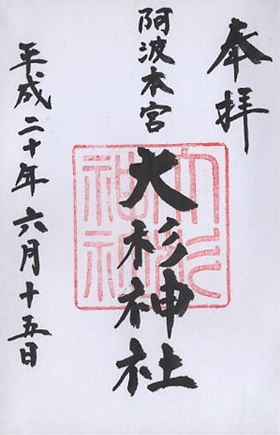 奉拝
阿波本宮
大杉神社
平成二十年六月十五日
大杉神社